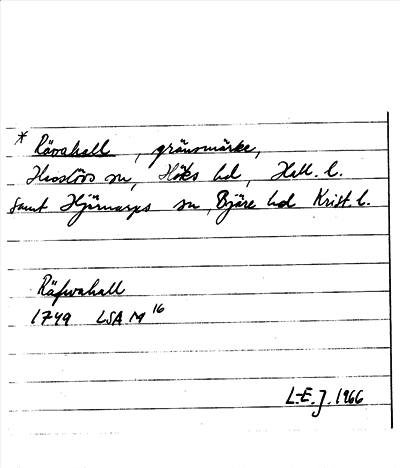 * Rävahall, gränsmärke,
Hasslövs sn, Höks hd, Hall. l.
samt Hjärnarps sn, Bjäre hd Krist. l.
Räfwahall
1749 LSA M 16
L-E. J. 1966